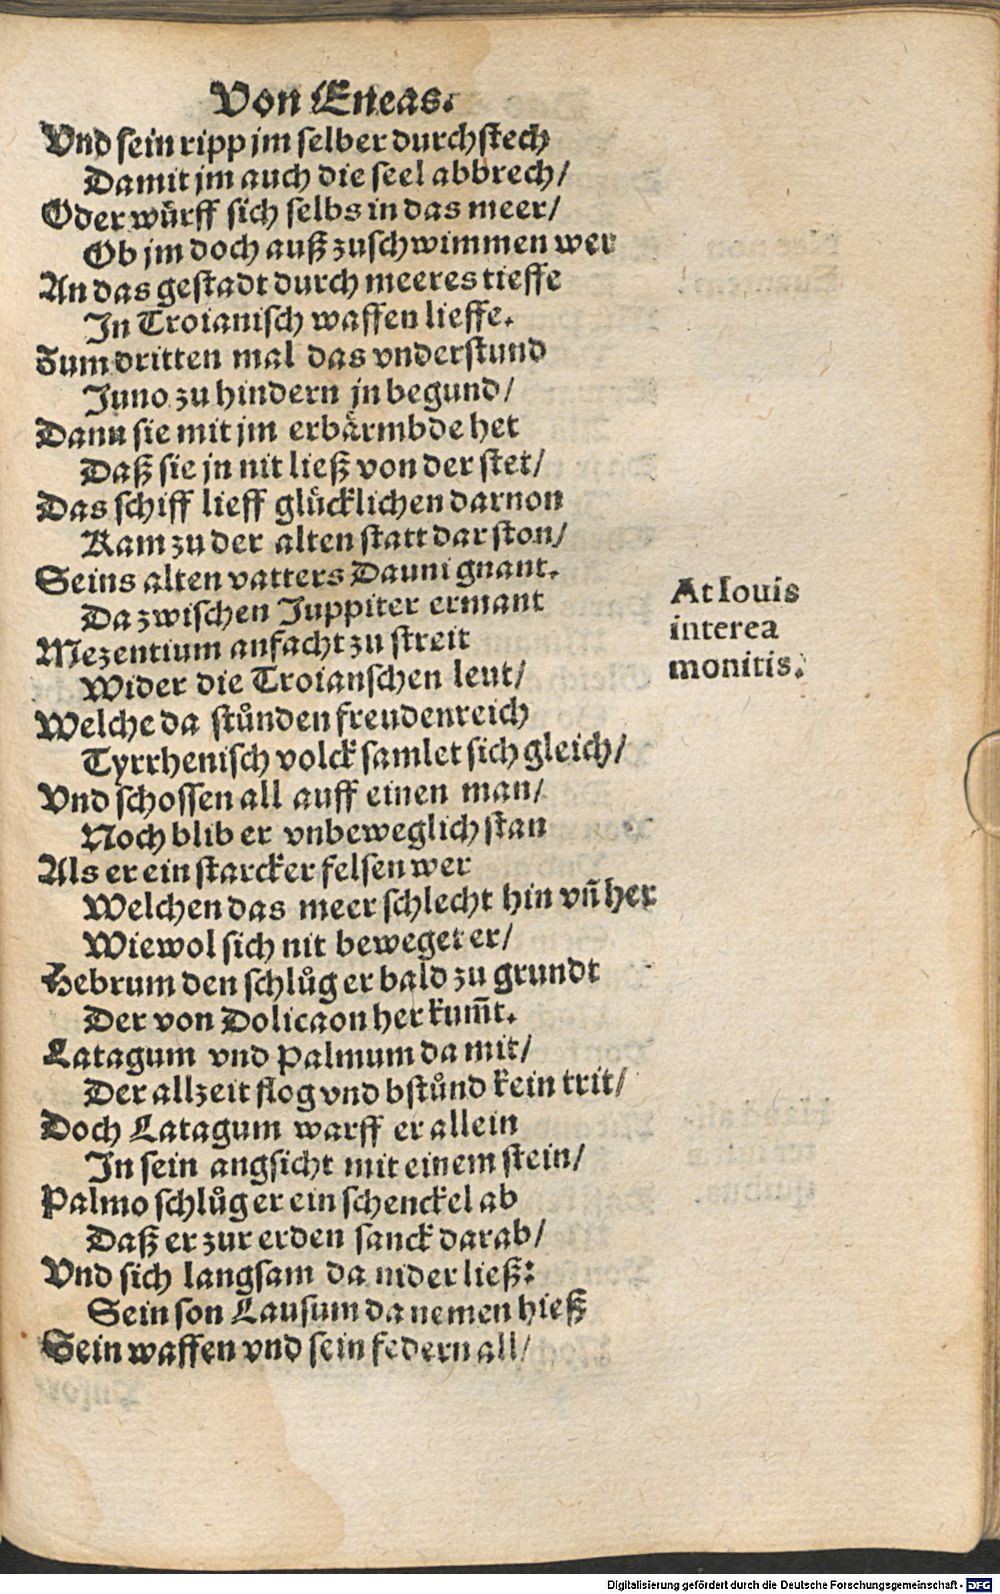 Von Eneas.
Vnd sein ripp jm selber durchstech
Damit jm auch die seel abbrech/
Oder wuͤrff sich selbs in das meer/
Ob jm doch auß zuschwimmen wer
An das gestadt durch meeres tieffe
In Troianisch waffen lieffe.
Zum dritten mal das vnderstund
Juno zu hindern jn begund/
Dann sie mit jm erbaͤrmbde het
Daß sie jn nit ließ von der stet/
Das schiff lieff gluͤcklichen darnon
Kam zu der alten statt dar ston/
Seins alten vatters Dauni gnant.
Da zwischen Juppiter ermant
Mezentium anfacht zu streit
Wider die Troianschen leut/
Welche da stuͦnden freudenreich
Tyrrhenisch volck samlet sich gleich/
Vnd schossen all auff einen man/
Noch blib er vnbeweglich stan
Als er ein starcker felsen wer
Welchen das meer schlecht hin vñ her
Wiewol sich nit beweget er/
Hebrum den schluͦg er bald zu grundt
Der von Dolicaon her kum̄t.
Latagum vnd Palmum da mit/
Der allzeit flog vnd bstuͦnd kein trit/
Doch Latagum warff er allein
In sein angsicht mit einem stein/
Palmo schluͦg er ein schenckel ab
Daß er zur erden sanck darab/
Vnd sich langsam da nider ließ:
Sein son Lausum da nemen hieß
Sein waffen vnd sein federn all/
At Iouis
interea
monitis.
Digitalisierung gefördert durch die Deutsche Forschungsgemeinschaft - DFG